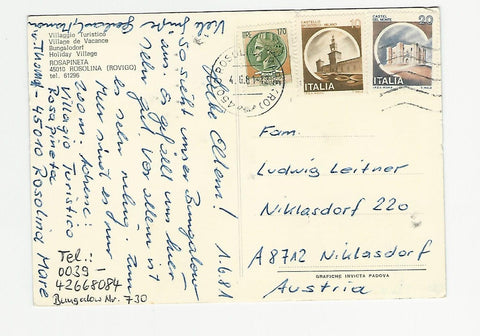 Villaggio Turistico
Village de Vacance
Bungalodorf
Holiday Village
ROSAPINETA
45010 ROSOLINA (ROVIGO)
tel. 61296
1.6.81
Liebe Eltern!
So sieht unser Bungalow
aus. Es gefällt uns hier
sehr gut. Vor allem ist
es sehr ruhig. Zum
Meer sind es nur
200 m. Adresse:
Villagio Turistico
Rosapineta
I-45010 Rosolina Mare
Viele Grüße
Tel.:
0039-
42668084
Bungalow Nr. 730
170
10
CASTELLO
MILANO
ITALIA
CASTEL
DEL MONTE
20
ITALIA
4.6.81
(RO)
Fam.
Ludwig Leitner
Niklasdorf 220
A 8712 Niklasdorf
Austria
GRAFICHE INVICTA PADOVA